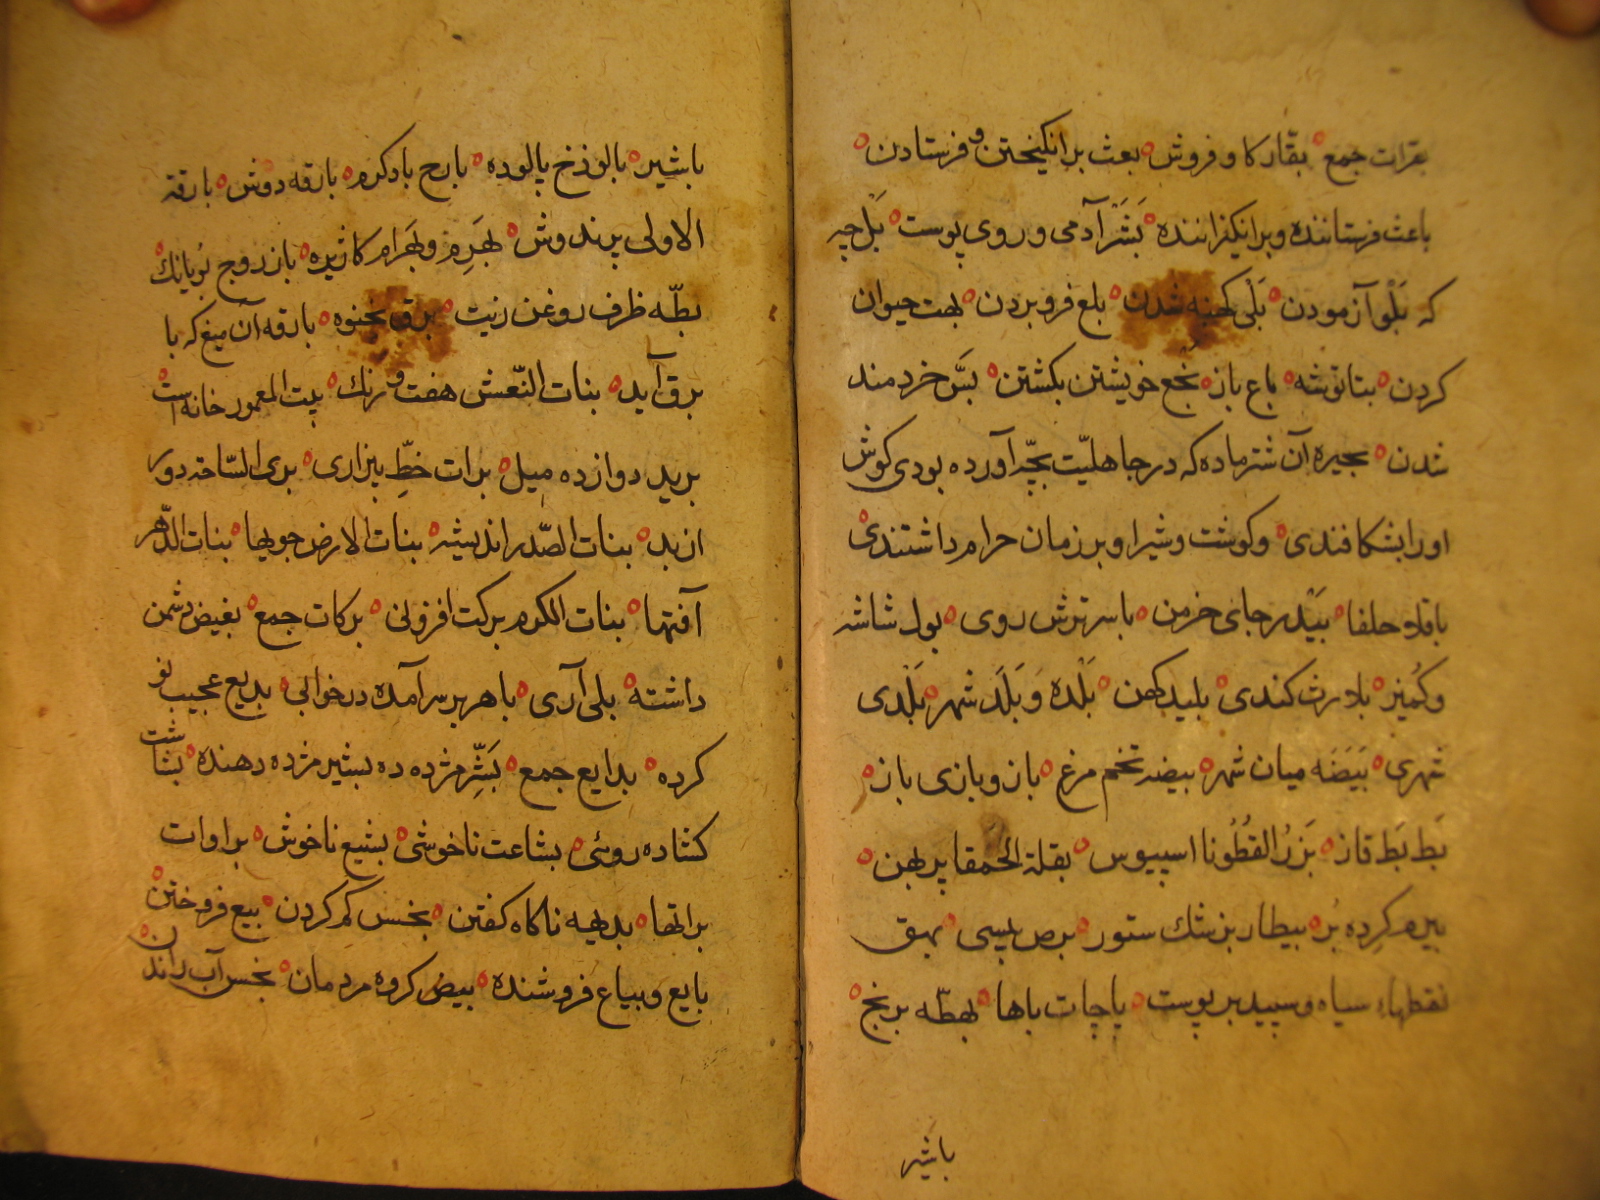 بقرات جمع بقار کاو فروش بعث برانکیختن و فرستادن
باعث فرستاننده و برانکیزاننده بَشَر آدمی و روی پوست بَلْ چه
که بَلْو آزمودن بَلْی کهنه شدن بلع فرو بردن بهت حیوان
کردن بتات توشه باع باز بَخْع خویشتن بکشتن بسّ خردمند
شدن بحیره آن شتر ماده که در جاهلیّت بچّه آورده بودی کوش
اورا بشکافندی و کوشت و شیر او بر زمان حرام داشتندی
باقلو حلفا بَیْدر جای خرمن باسر ترش روی بول شاشه
و کمیز بلادت کندی بلید کهن بَلْده وَ بَلَد شهر بَلَدی
شهری بَیْضَه میان شهر بیضه تخم مرغ باز و بازی باز
بَط بَط قاز بَزْرُ القُطُونا اسپیوس بقلة الحَمقا پربهن
بیرم کرده بُر بیطار بزشك ستور برص پیسی بهق
نقطهاء سیاه و سپید بر پوست پاچات باها بهطّه برنج
باشیر
باشیر بالوذخ پالوده بارح باد کرم بارقه دوش بارقة
الاولی پرندوش بَهرَم و بَهرام کاژیره بازروج بُویانك
بطّه ظرف روغن زیت برق بخنوه بارقه آن میغ که با
برق آید بنات النّعش هفت و رنك بیت المعمور خانه است
برید دوازده میل برات خطّ بیزاری بری السّاحه دور
از بد بنات الصّدر اندیشه بنات الارض جویها بنات الدّهر
آفتها بنات الکرم برکت افزونی برکات جمع بغیض دشمن
داشته بلی آری باهر بر سر آمده در خوابی بدیع عجیب نو
کرده بدایع جمع بَشِّر مژده ده بشیر مژده دهنده بشاشت
کشاده روئی بشاعت ناخوشی بشیع ناخوش براوات
براتها بدیهه ناکاه کفتن بخس کم کردن بیع فروختن
بایع و بیاع فروشنده بیضُ کروه مردمان بخس آب راندن